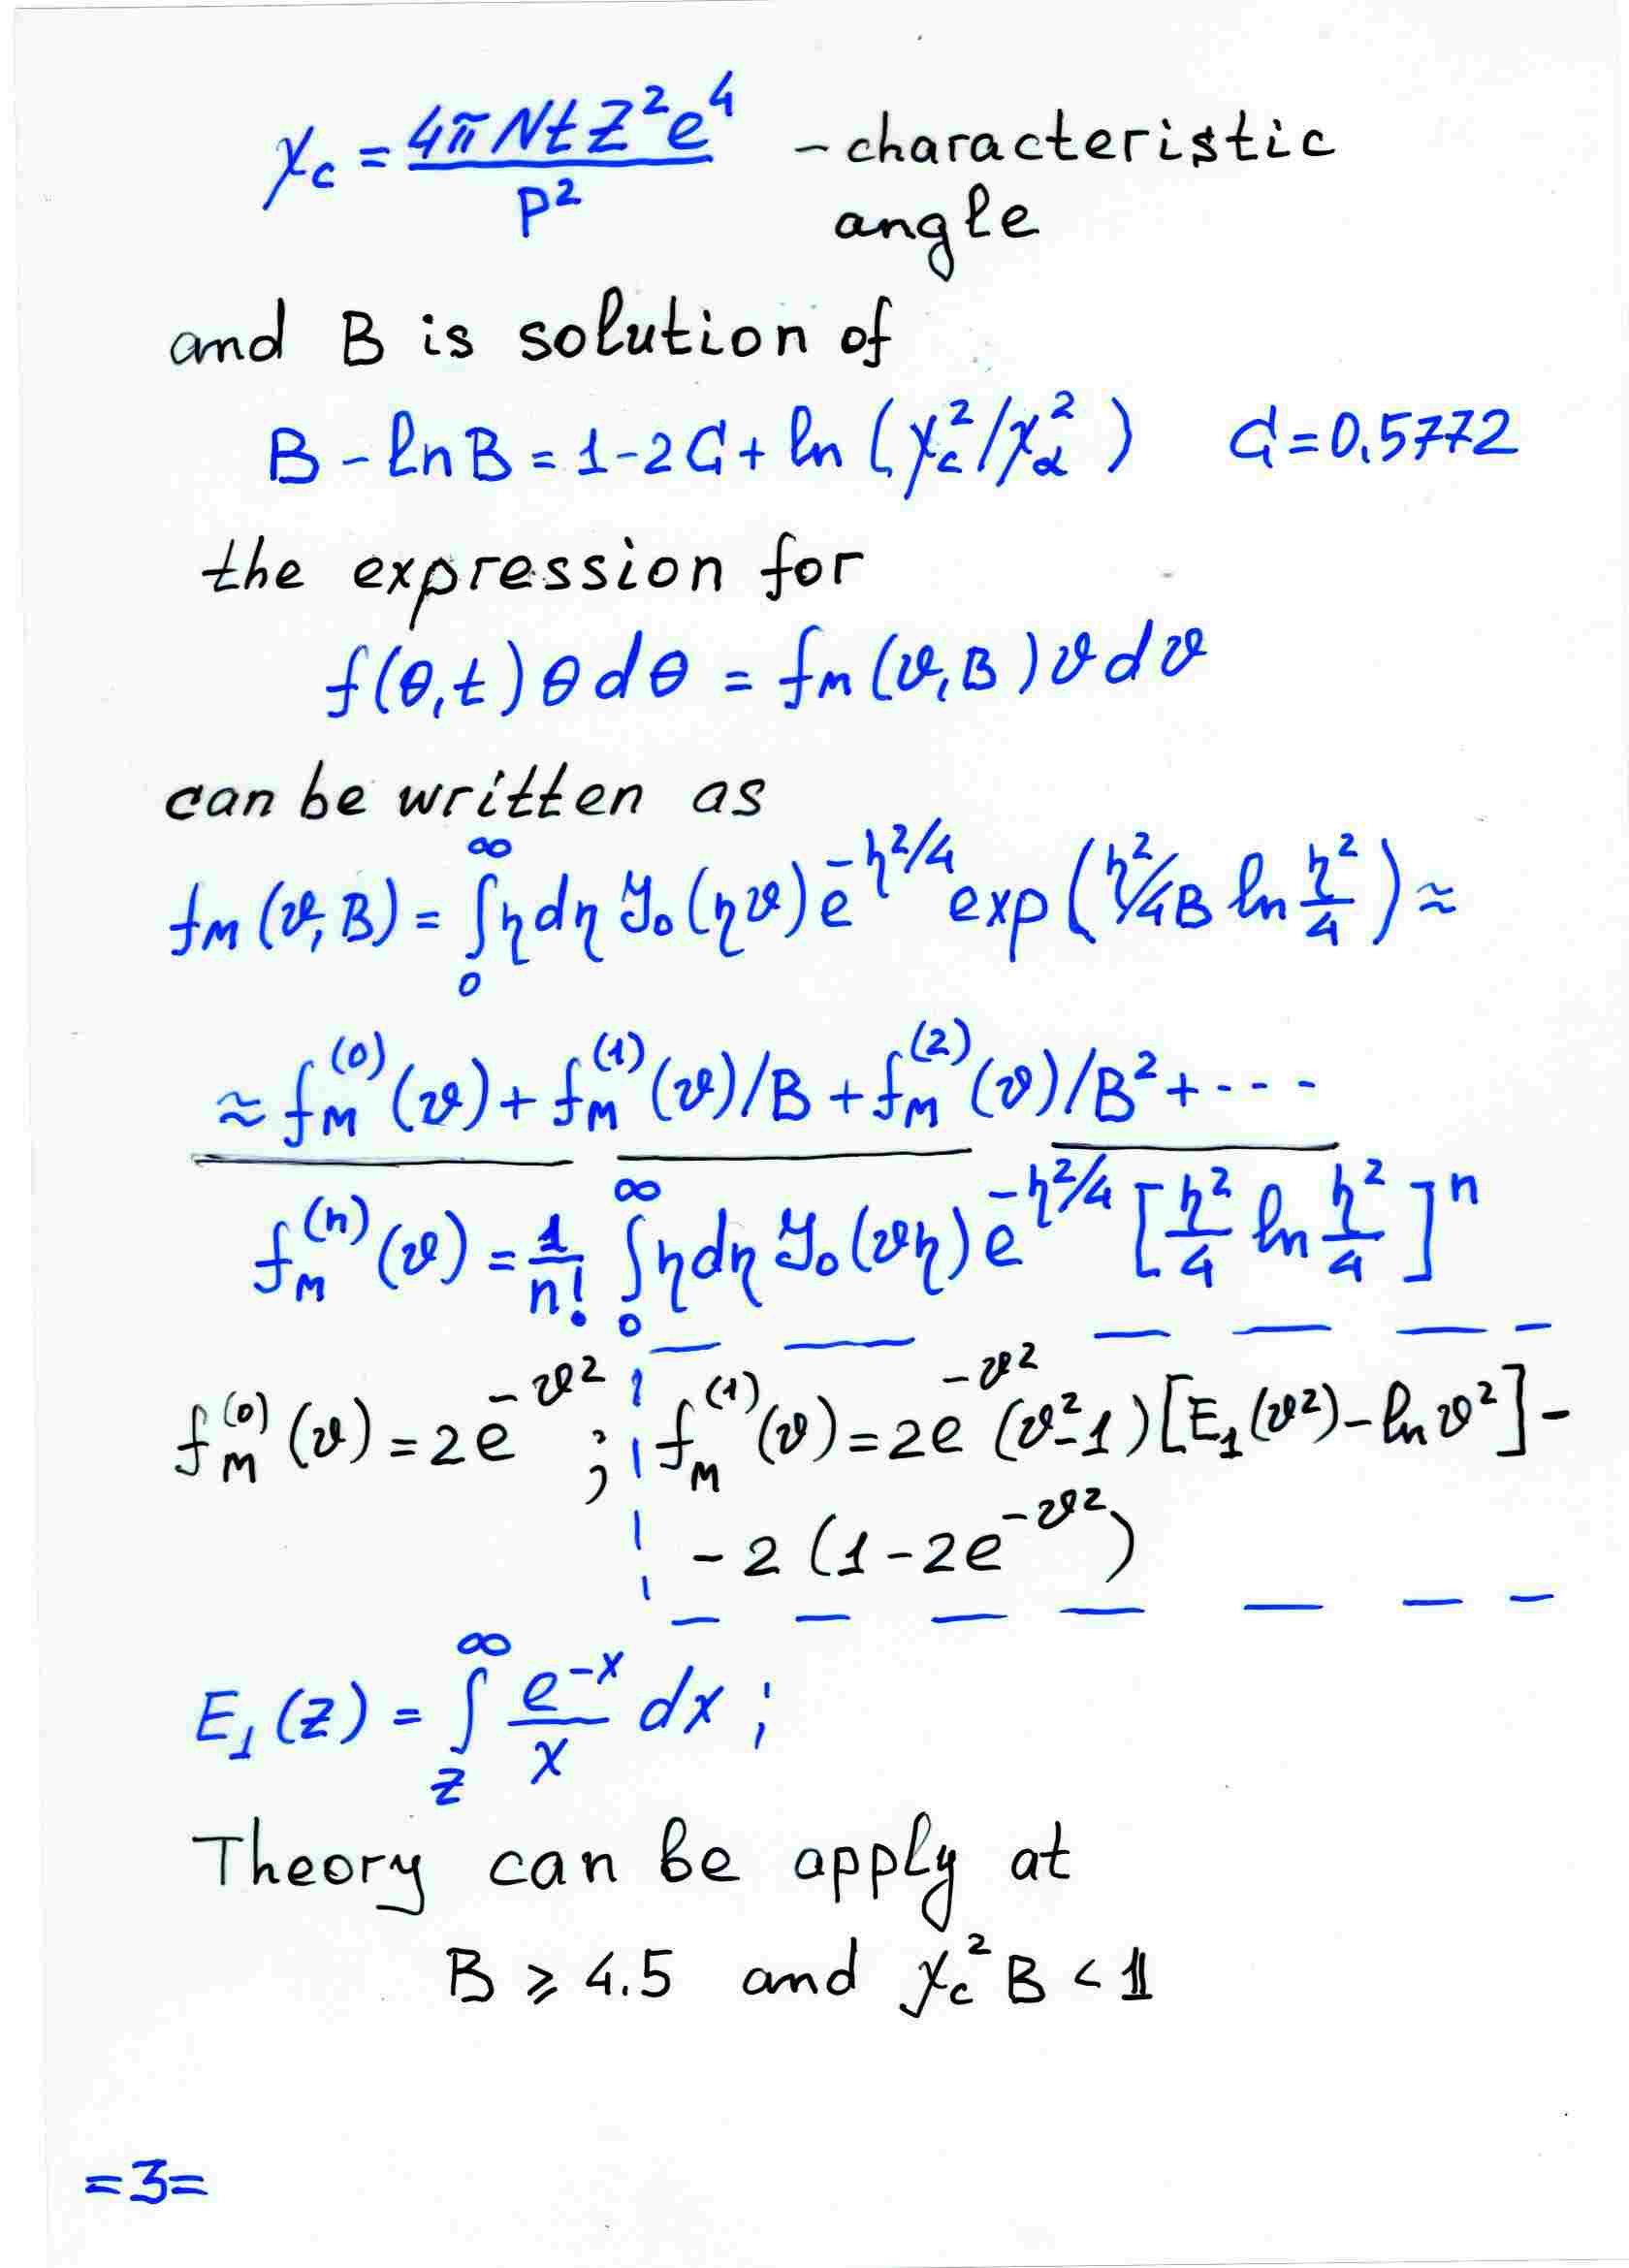 χc = 4πNtZ²e⁴ / p² - characteristic
angle
and B is solution of
B - ln B = 1 - 2C + ln (χc²/χα²) C = 0.5772
the expression for
f(θ,t) θ dθ = fм(ϑ,B) ϑ dϑ
can be written as
fм(ϑ,B) = ∫₀^∞ η dη J₀(ηϑ) e^(-η²/4) exp(η²/4B ln η²/4) ≈
≈ fм⁽⁰⁾(ϑ) + fм⁽¹⁾(ϑ)/B + fм⁽²⁾(ϑ)/B² + ----
fм⁽ⁿ⁾(ϑ) = 1/n! ∫₀^∞ η dη J₀(ϑη) e^(-η²/4) [η²/4 ln η²/4]ⁿ
fм⁽⁰⁾(ϑ) = 2e^(-ϑ²) ; fм⁽¹⁾(ϑ) = 2e^(-ϑ²) (ϑ²-1)[E₁(ϑ²) - ln ϑ²] -
- 2 (1 - 2e^(-ϑ²))
E₁(z) = ∫_z^∞ e^(-x)/x dx ;
Theory can be apply at
B ⩾ 4.5 and χc² B < 1
=3=